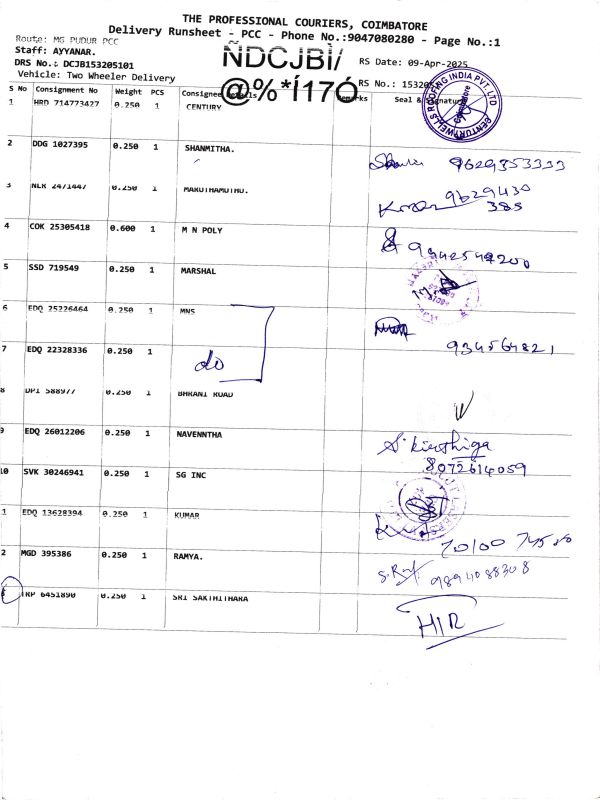 THE PROFESSIONAL COURIERS, COIMBATORE
Delivery Runsheet - PCC - Phone No.:9047080280 - Page No.:1
Route: MG PUDUR PCC
Staff: AYYANAR.
RS Date: 09-Apr-2025
DRS No.: DCJB153205101
ÑDCJBÌ/
Vehicle: Two Wheeler Delivery
@%*Í17Ó
S No Consignment No Weight PCS Consignee Details Remarks Seal & Signature
1 HRD 714773427 0.250 1 CENTURY
2 DDG 1027395 0.250 1 SHANMITHA. 9629353333
3 NLR 2471447 0.250 1 MARUTHAMUTHU. 9629430 385
4 COK 25305418 0.600 1 M N POLY
5 SSD 719549 0.250 1 MARSHAL
6 EDQ 25226464 0.250 1 MNS
7 EDQ 22328336 0.250 1 do 934564821
8 DPI 588977 0.250 1 BHRANI ROAD
9 EDQ 26012206 0.250 1 NAVENNTHA S. kirthiga 8072614059
10 SVK 30246941 0.250 1 SG INC
1 EDQ 13628394 0.250 1 KUMAR
2 MGD 395386 0.250 1 RAMYA. 9894088308
3 TRP 6451890 0.250 1 SRI SAKTHITHARA